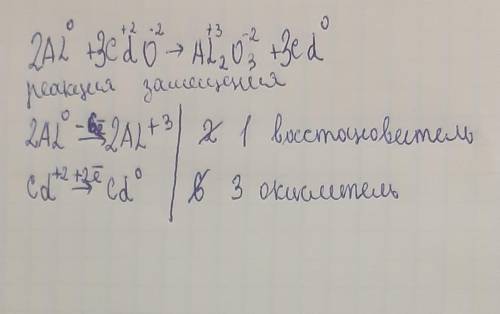 2Al⁰ + 3Cd⁺²O⁻² → Al₂⁺³O₃⁻² + 3Cd⁰
реакция замещения
2Al⁰ -6ē → 2Al⁺³ | 2 1 восстановитель
Cd⁺² +2ē → Cd⁰ | 6 3 окислитель